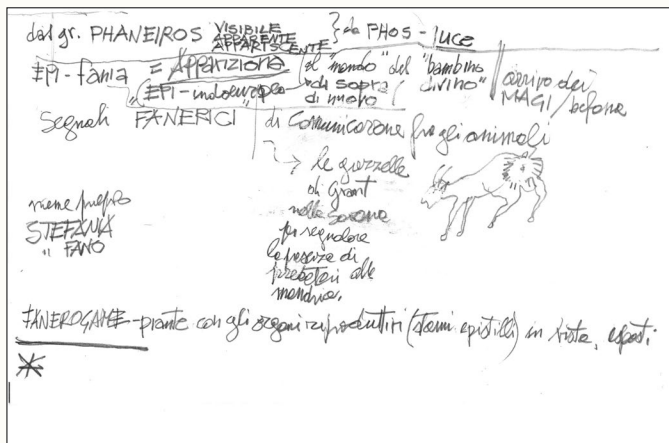 dal gr. PHANEIROS VISIBILE APPARENTE APPARISCENTE } da PHOS - luce
EPI-fania = Apparizione al "mondo" del "bambino divino" arrivo dei MAGI / befana
"EPI-indoeuropeo di sopra di nuovo
Segnali FANERICI di comunicazione fra gli animali
le gazzelle
di Grant
nella savana
per segnalare
la presenza di
predatori alle
mandrie.
nome proprio
STEFANIA
" FANO
FANEROGAME - piante con gli organi riproduttivi (stami e pistilli) in vista, esposti
*